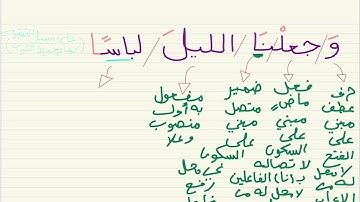 وَ/جعلْ/نَا/الليلَ/لباسًا
حرف
عطف
مبني
على
الفتح
لا محل
له من
فعل
ماضٍ
مبني
على
السكون
لاتصاله
ب(نا)الفاعلين
لا محل له من
ضمير
متصل
مبني
على
السكون
في محل
رفع
مفعول
به أول
منصوب
وعلا